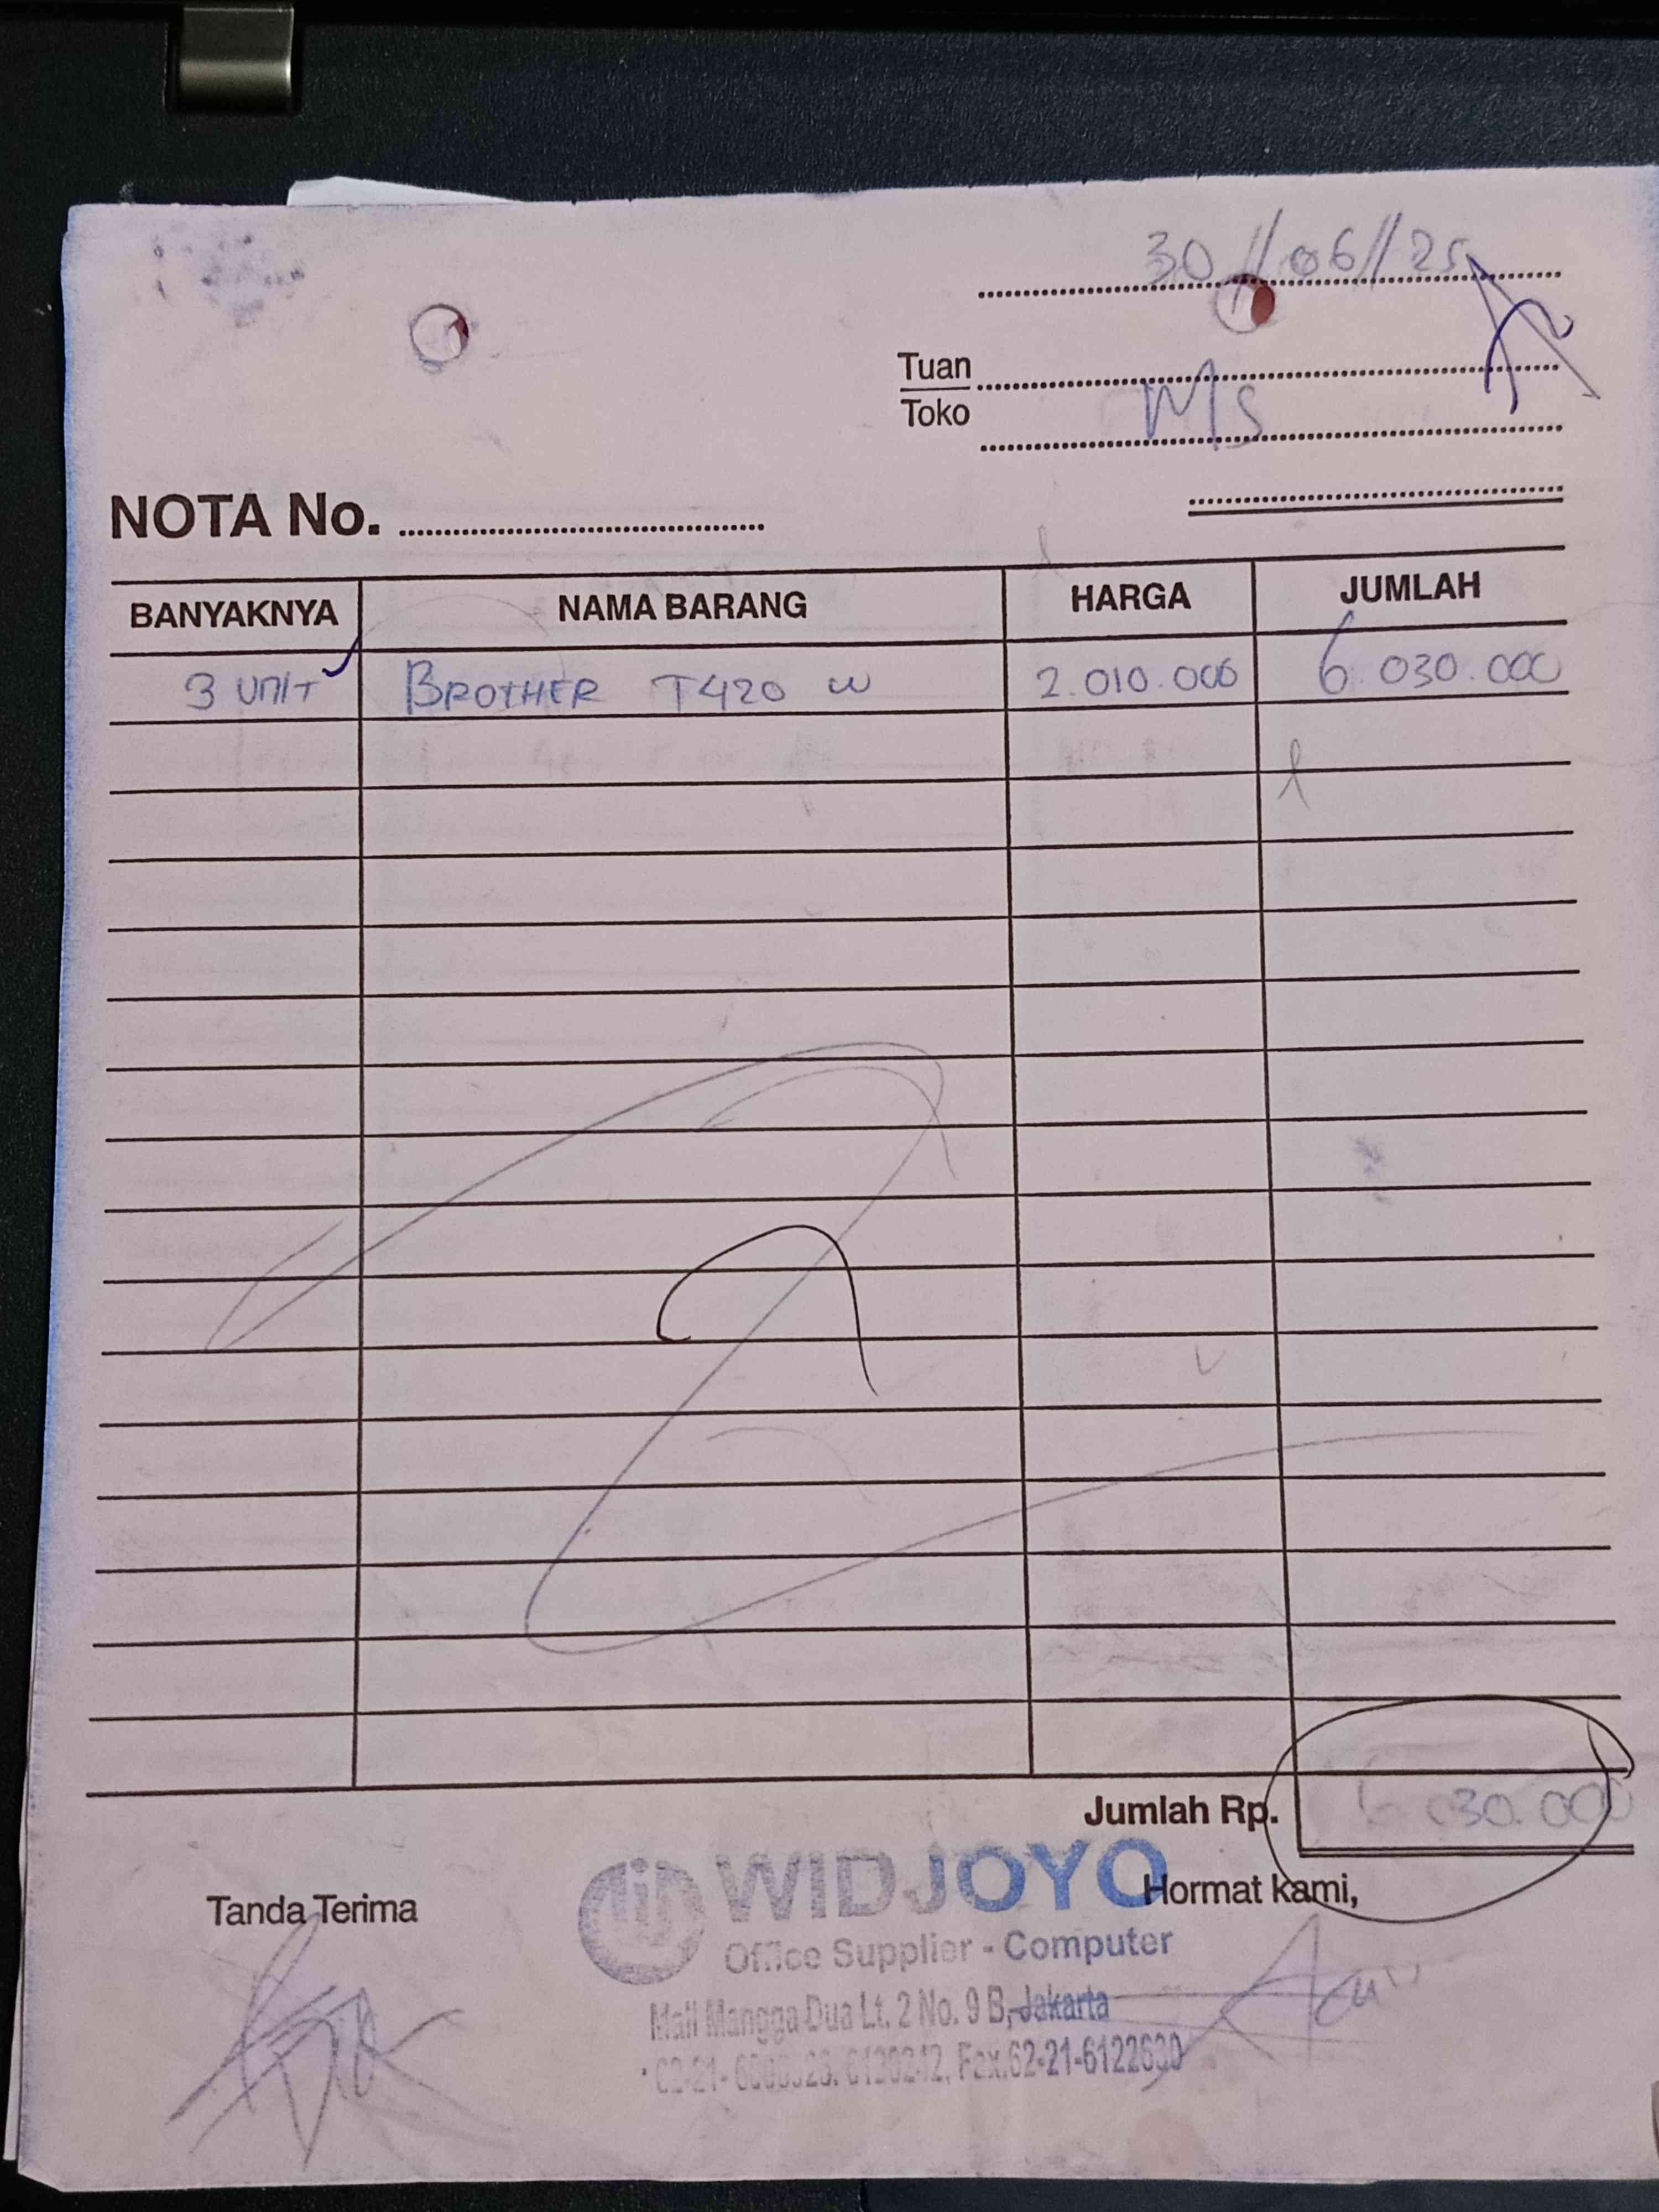 30 // 06 // 25
Tuan
Toko
MS
NOTA No.
BANYAKNYA NAMA BARANG HARGA JUMLAH
3 UNIT BROTHER T420 W 2.010.000 6.030.000
Jumlah Rp. 6.030.000
Tanda Terima
Hormat kami,
WIDJOYO
Office Supplier - Computer
Mall Mangga Dua Lt. 2 No. 9 B, Jakarta
Fax.62-21-6122630